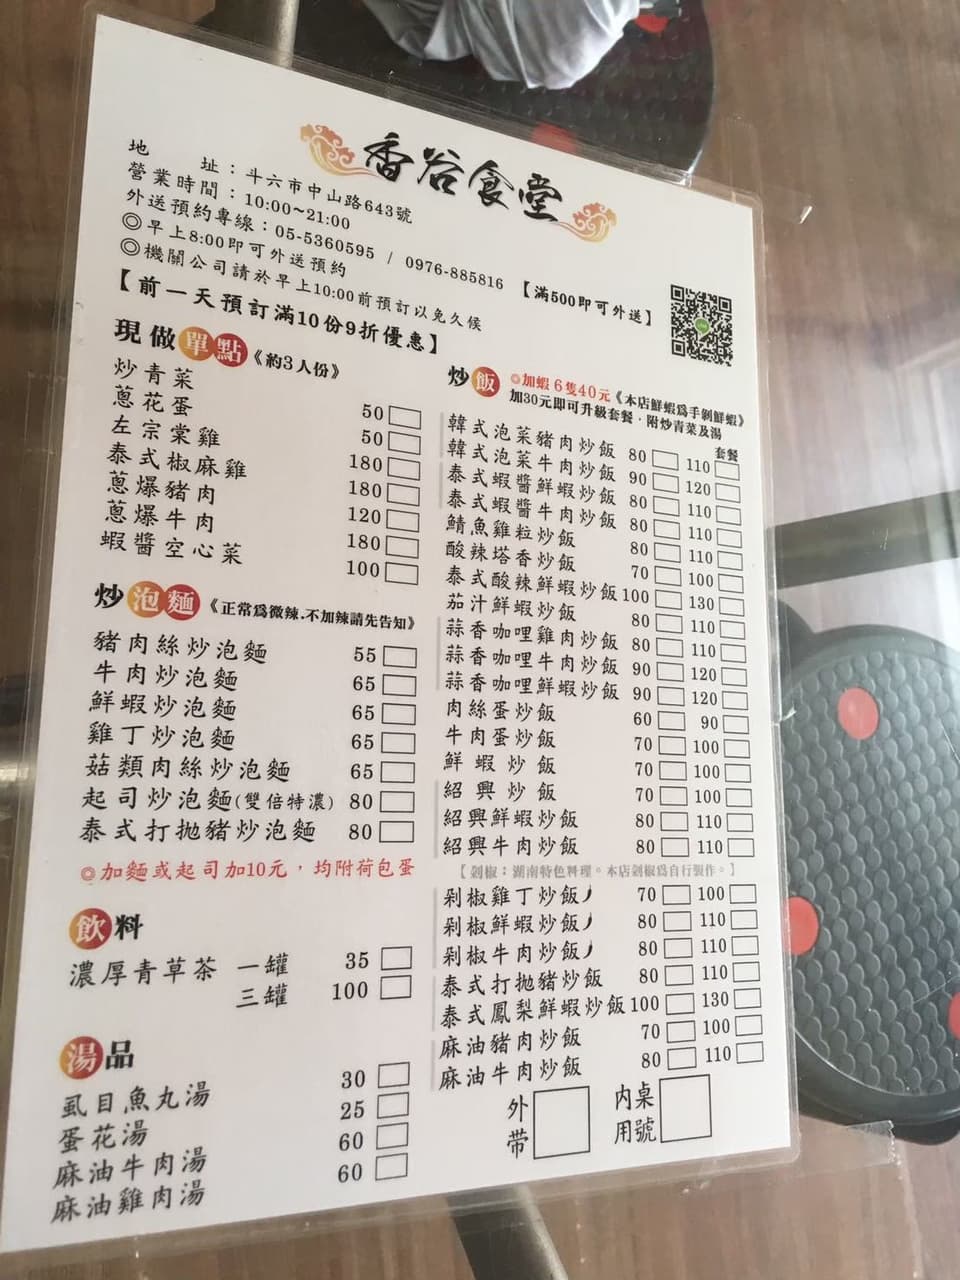 香谷食堂
地址：斗六市中山路643號
營業時間：10:00~21:00
外送預約專線：05-5360595 / 0976-885816 【滿500即可外送】
◎早上8:00即可外送預約
◎機關公司請於早上10:00前預訂以免久候
【前一天預訂滿10份9折優惠】
現做單點《約3人份》
炒青菜 50
蔥花蛋 50
左宗棠雞 180
泰式椒麻雞 180
蔥爆豬肉 120
蔥爆牛肉 180
蝦醬空心菜 100
炒泡麵《正常為微辣.不加辣請先告知》
豬肉絲炒泡麵 55
牛肉炒泡麵 65
鮮蝦炒泡麵 65
雞丁炒泡麵 65
菇類肉絲炒泡麵 65
起司炒泡麵(雙倍特濃) 80
泰式打拋豬炒泡麵 80
◎加麵或起司加10元，均附荷包蛋
飲料
濃厚青草茶 一罐 35
三罐 100
湯品
虱目魚丸湯 30
蛋花湯 25
麻油牛肉湯 60
麻油雞肉湯 60
炒飯 ◎加蝦6隻40元《本店鮮蝦為手剝鮮蝦》
加30元即可升級套餐．附炒青菜及湯
套餐
韓式泡菜豬肉炒飯 80 110
韓式泡菜牛肉炒飯 90 120
泰式蝦醬鮮蝦炒飯 80 110
泰式蝦醬牛肉炒飯 80 110
鯖魚雞粒炒飯 80 110
酸辣塔香炒飯 70 100
泰式酸辣鮮蝦炒飯 100 130
茄汁鮮蝦炒飯 80 110
蒜香咖哩雞肉炒飯 80 110
蒜香咖哩牛肉炒飯 90 120
蒜香咖哩鮮蝦炒飯 90 120
肉絲蛋炒飯 60 90
牛肉蛋炒飯 70 100
鮮蝦炒飯 70 100
紹興炒飯 70 100
紹興鮮蝦炒飯 80 110
紹興牛肉炒飯 80 110
【剁椒：湖南特色料理。本店剁椒為自行製作。】
剁椒雞丁炒飯 70 100
剁椒鮮蝦炒飯 80 110
剁椒牛肉炒飯 80 110
泰式打拋豬炒飯 80 110
泰式鳳梨鮮蝦炒飯 100 130
麻油豬肉炒飯 70 100
麻油牛肉炒飯 80 110
外帶
內用 桌號